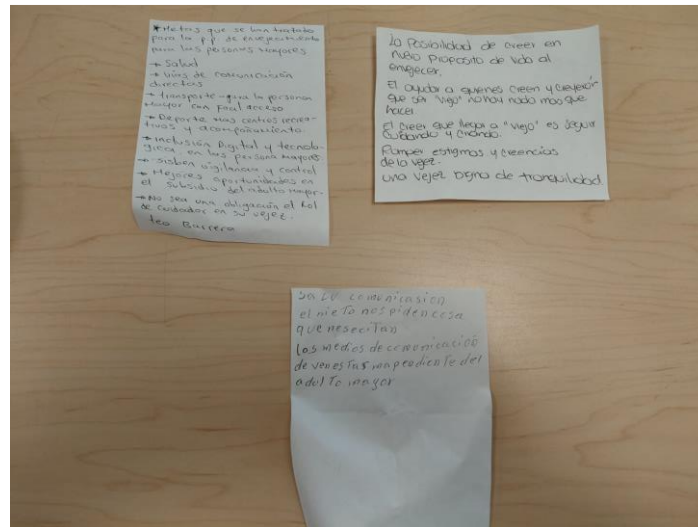 * Metas que se han tratado
para la p.p. de envejecimiento
para las personas Mayores
→ Salud
→ Vías de comunicación
directas
→ transporte - para la persona
Mayor con Facil acceso
→ Deporte mas centros recrea-
tivos y acompañamiento.
→ inclusión Digital y tecnolo-
gica en las persona mayores
→ sisben vigilancia y control
→ Mejores oportunidades en
el subsidio del adulto mayor.
→ No sea una obligación el Rol
de cuidador en su vejez.
Barrera
La Posibilidad de creer en
nuevo proposito de vida al
envejecer.
El ayudar a quienes creen y creyeron
que ser "viejo" no hay nada mas que
hacer
El creer que llegar a "viejo" es seguir
cuidando y criando.
Romper estigmas y creencias
de la vejez.
una vejez Digna de tranquilidad.
comunicasion
el nieto nos piden cosa
que nesecitan
los medios de comunicació
de venestar mapendiente del
adulto mayor